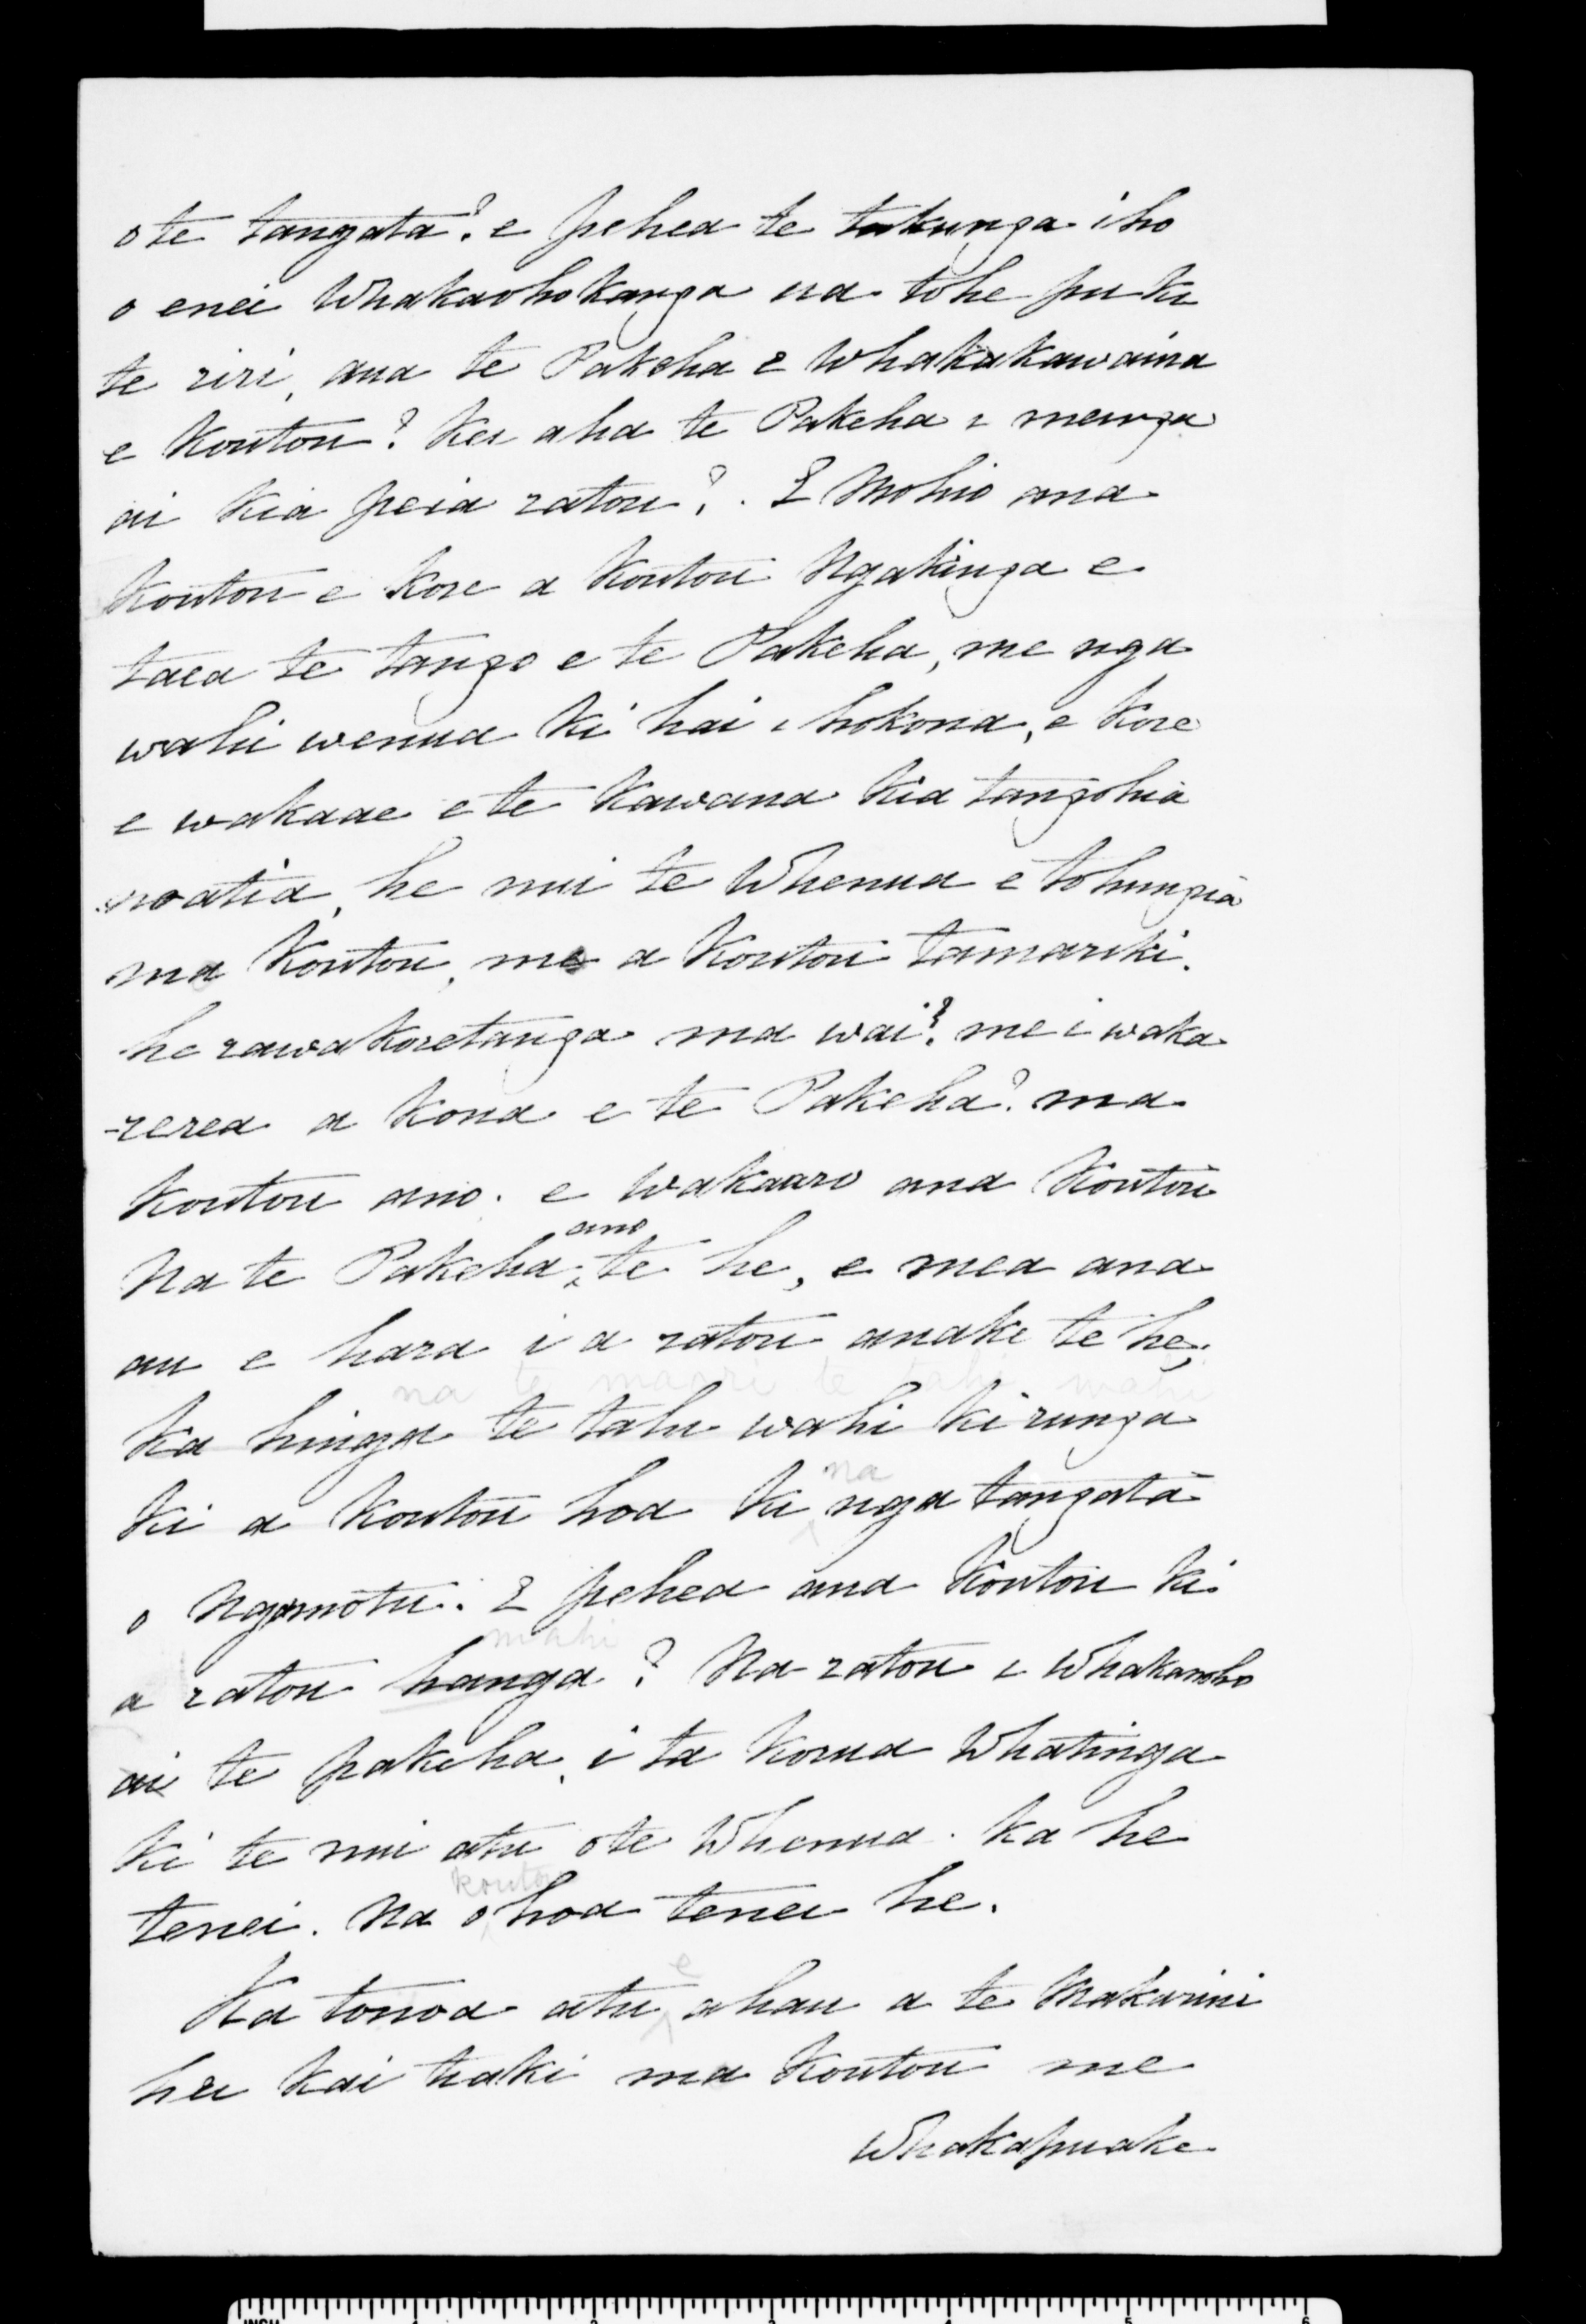 o te tangata? e pehea te tukunga iho
o enei Whakaohokanga na tohe pu ki
te riri, ana te Pakeha e whakakawaina
e Koutou? Kei aha te Pakeha i meinga
ai Kia peia ratou? . E Mohio ana
Koutou e Kore a Koutou Ngakinga e
taea te tango e te Pakeha, me nga
wahi wenua Ki hai i hokona, e Kore
e wakaae e te Kawana Kia tangohia
noatia, he nui te Whenua e tohungia
ma Koutou, ma a Koutou tamariki.
he rawakoretanga ma wai? me i waka
-rerea a Kona e te Pakeha? ma
Koutou ano. e wakaaro ana Koutou
Na te Pakeha ano te he, e mea ana
au e hara i a ratou anake te he,
na te maori te tahi wahi
Ka hinga te tahi wahi Ki runga
Ki a Koutou hoa Ki na nga tangata
o Ngamotu. E pehea ana Koutou Ki
a ratou hanga mahi? Na ratou i Whakaoho
ai te pakeha, i ta Korua Whatinga
Ki te nui atu o te Whenua. Ka he
tenei. Na o koutou hoa tenei he.
Ka tonoa atu e ahau a te Makarini
hei Kai tiaki ma Koutou me
Whakapuake